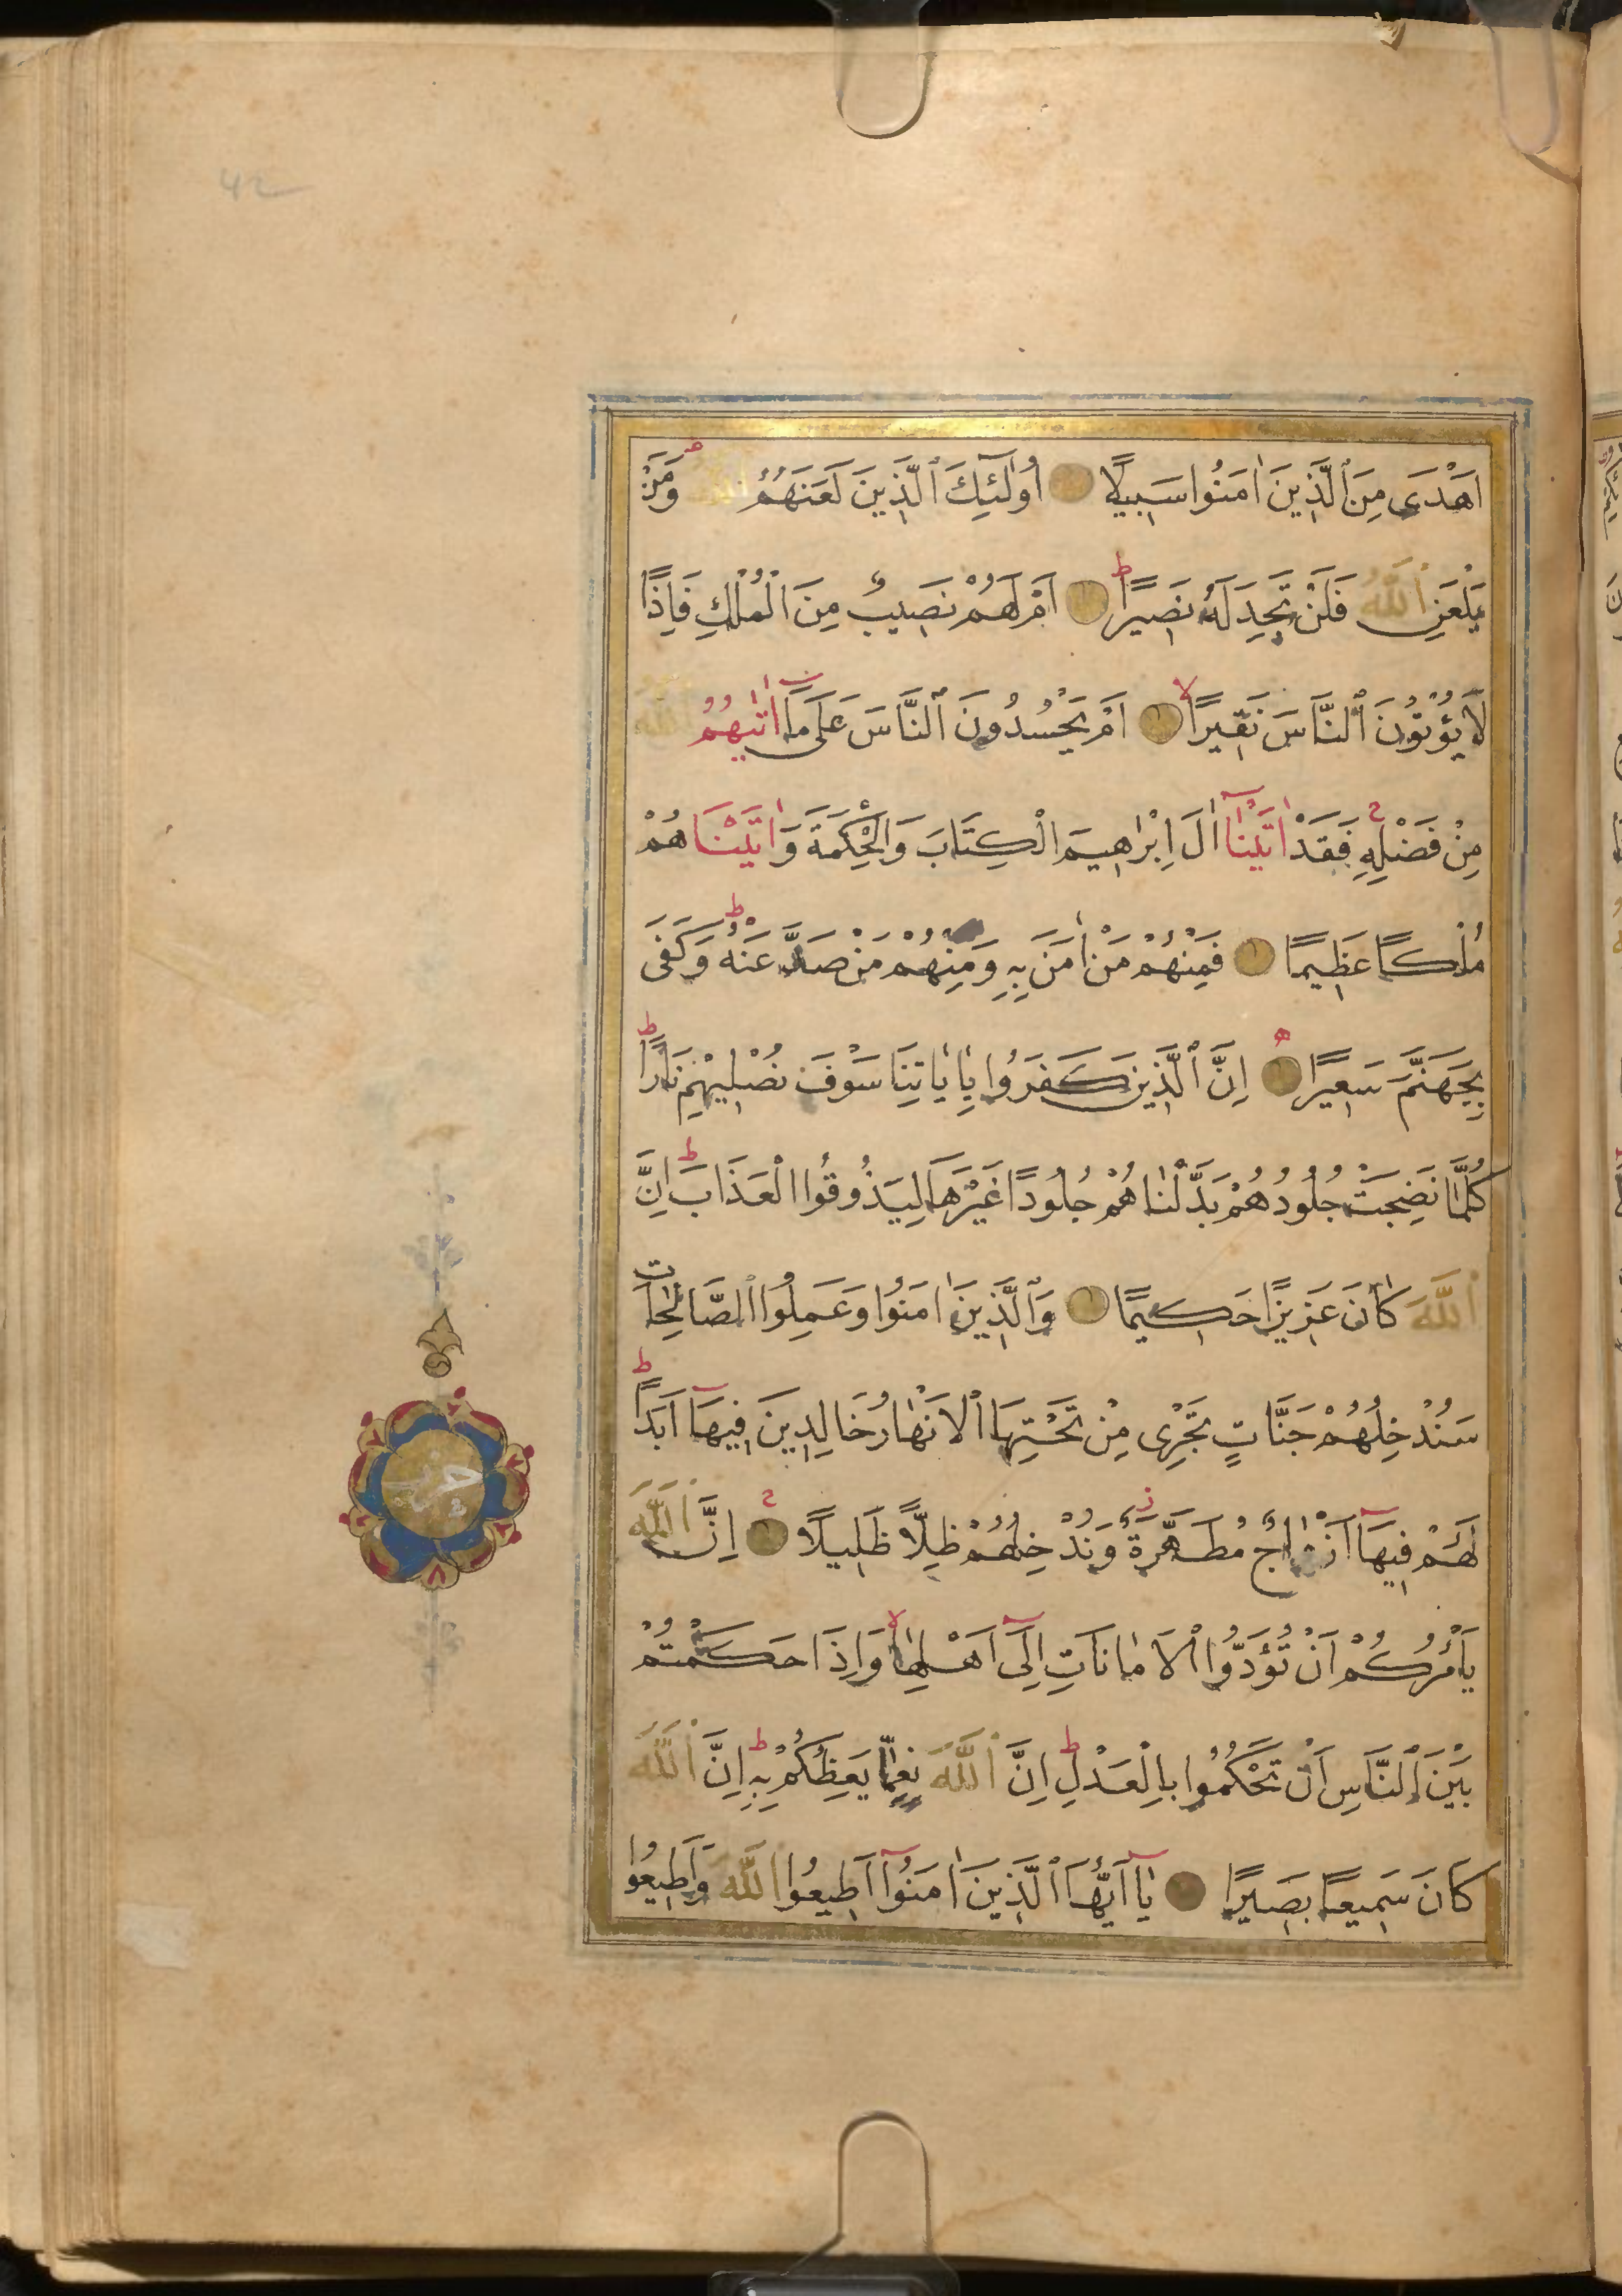 اَهْدٰى مِنَ ٱلَّذِينَ اٰمَنُوا سَبِيلًا اُولٰٓئِكَ ٱلَّذِينَ لَعَنَهُمُ ٱللّٰهُ وَمَنْ
يَلْعَنِ ٱللّٰهُ فَلَنْ تَجِدَ لَهُ نَصِيرًا اَمْ لَهُمْ نَصِيبٌ مِنَ الْمُلْكِ فَاِذًا
لَا يُؤْتُونَ ٱلنَّاسَ نَقِيرًا اَمْ يَحْسُدُونَ ٱلنَّاسَ عَلٰى مَا اٰتٰيهُمُ ٱللّٰهُ
مِنْ فَضْلِهِ فَقَدْ اٰتَيْنَا اٰلَ اِبْرٰهِيمَ الْكِتَابَ وَالْحِكْمَةَ وَاٰتَيْنَاهُمْ
مُلْكًا عَظِيمًا فَمِنْهُمْ مَنْ اٰمَنَ بِهِ وَمِنْهُمْ مَنْ صَدَّ عَنْهُ وَكَفٰى
بِجَهَنَّمَ سَعِيرًا اِنَّ ٱلَّذِينَ كَفَرُوا بِاٰيَاتِنَا سَوْفَ نُصْلِيهِمْ نَارًا
كُلَّمَا نَضِجَتْ جُلُودُهُمْ بَدَّلْنَاهُمْ جُلُودًا غَيْرَهَا لِيَذُوقُوا الْعَذَابَ اِنَّ
ٱللّٰهَ كَانَ عَزِيزًا حَكِيمًا وَٱلَّذِينَ اٰمَنُوا وَعَمِلُوا ٱلصَّالِحَاتِ
سَنُدْخِلُهُمْ جَنَّاتٍ تَجْرِى مِنْ تَحْتِهَا ٱلْاَنْهَارُ خَالِدِينَ فِيهَا اَبَدًا
لَهُمْ فِيهَا اَزْوَاجٌ مُطَهَّرَةٌ وَنُدْخِلُهُمْ ظِلًّا ظَلِيلًا اِنَّ ٱللّٰهَ
يَأْمُرُكُمْ اَنْ تُؤَدُّوا ٱلْاَمَانَاتِ اِلٰى اَهْلِهَا وَاِذَا حَكَمْتُمْ
بَيْنَ ٱلنَّاسِ اَنْ تَحْكُمُوا بِالْعَدْلِ اِنَّ ٱللّٰهَ نِعِمَّا يَعِظُكُمْ بِهِ اِنَّ ٱللّٰهَ
كَانَ سَمِيعًا بَصِيرًا يَا اَيُّهَا ٱلَّذِينَ اٰمَنُوا اَطِيعُوا ٱللّٰهَ وَاَطِيعُوا
42